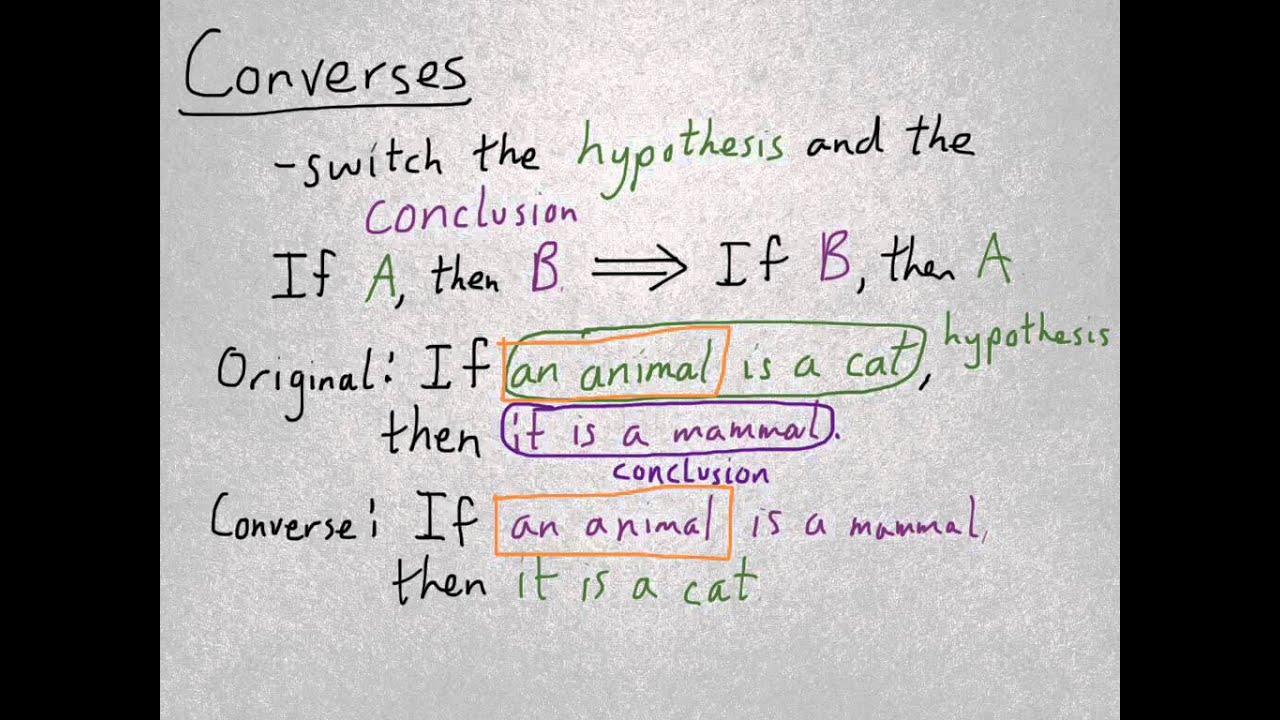 Converses
-switch the hypothesis and the
conclusion
If A, then B. ⟹ If B, then A
Original: If an animal is a cat, hypothesis
then it is a mammal.
conclusion
Converse: If an animal is a mammal,
then it is a cat